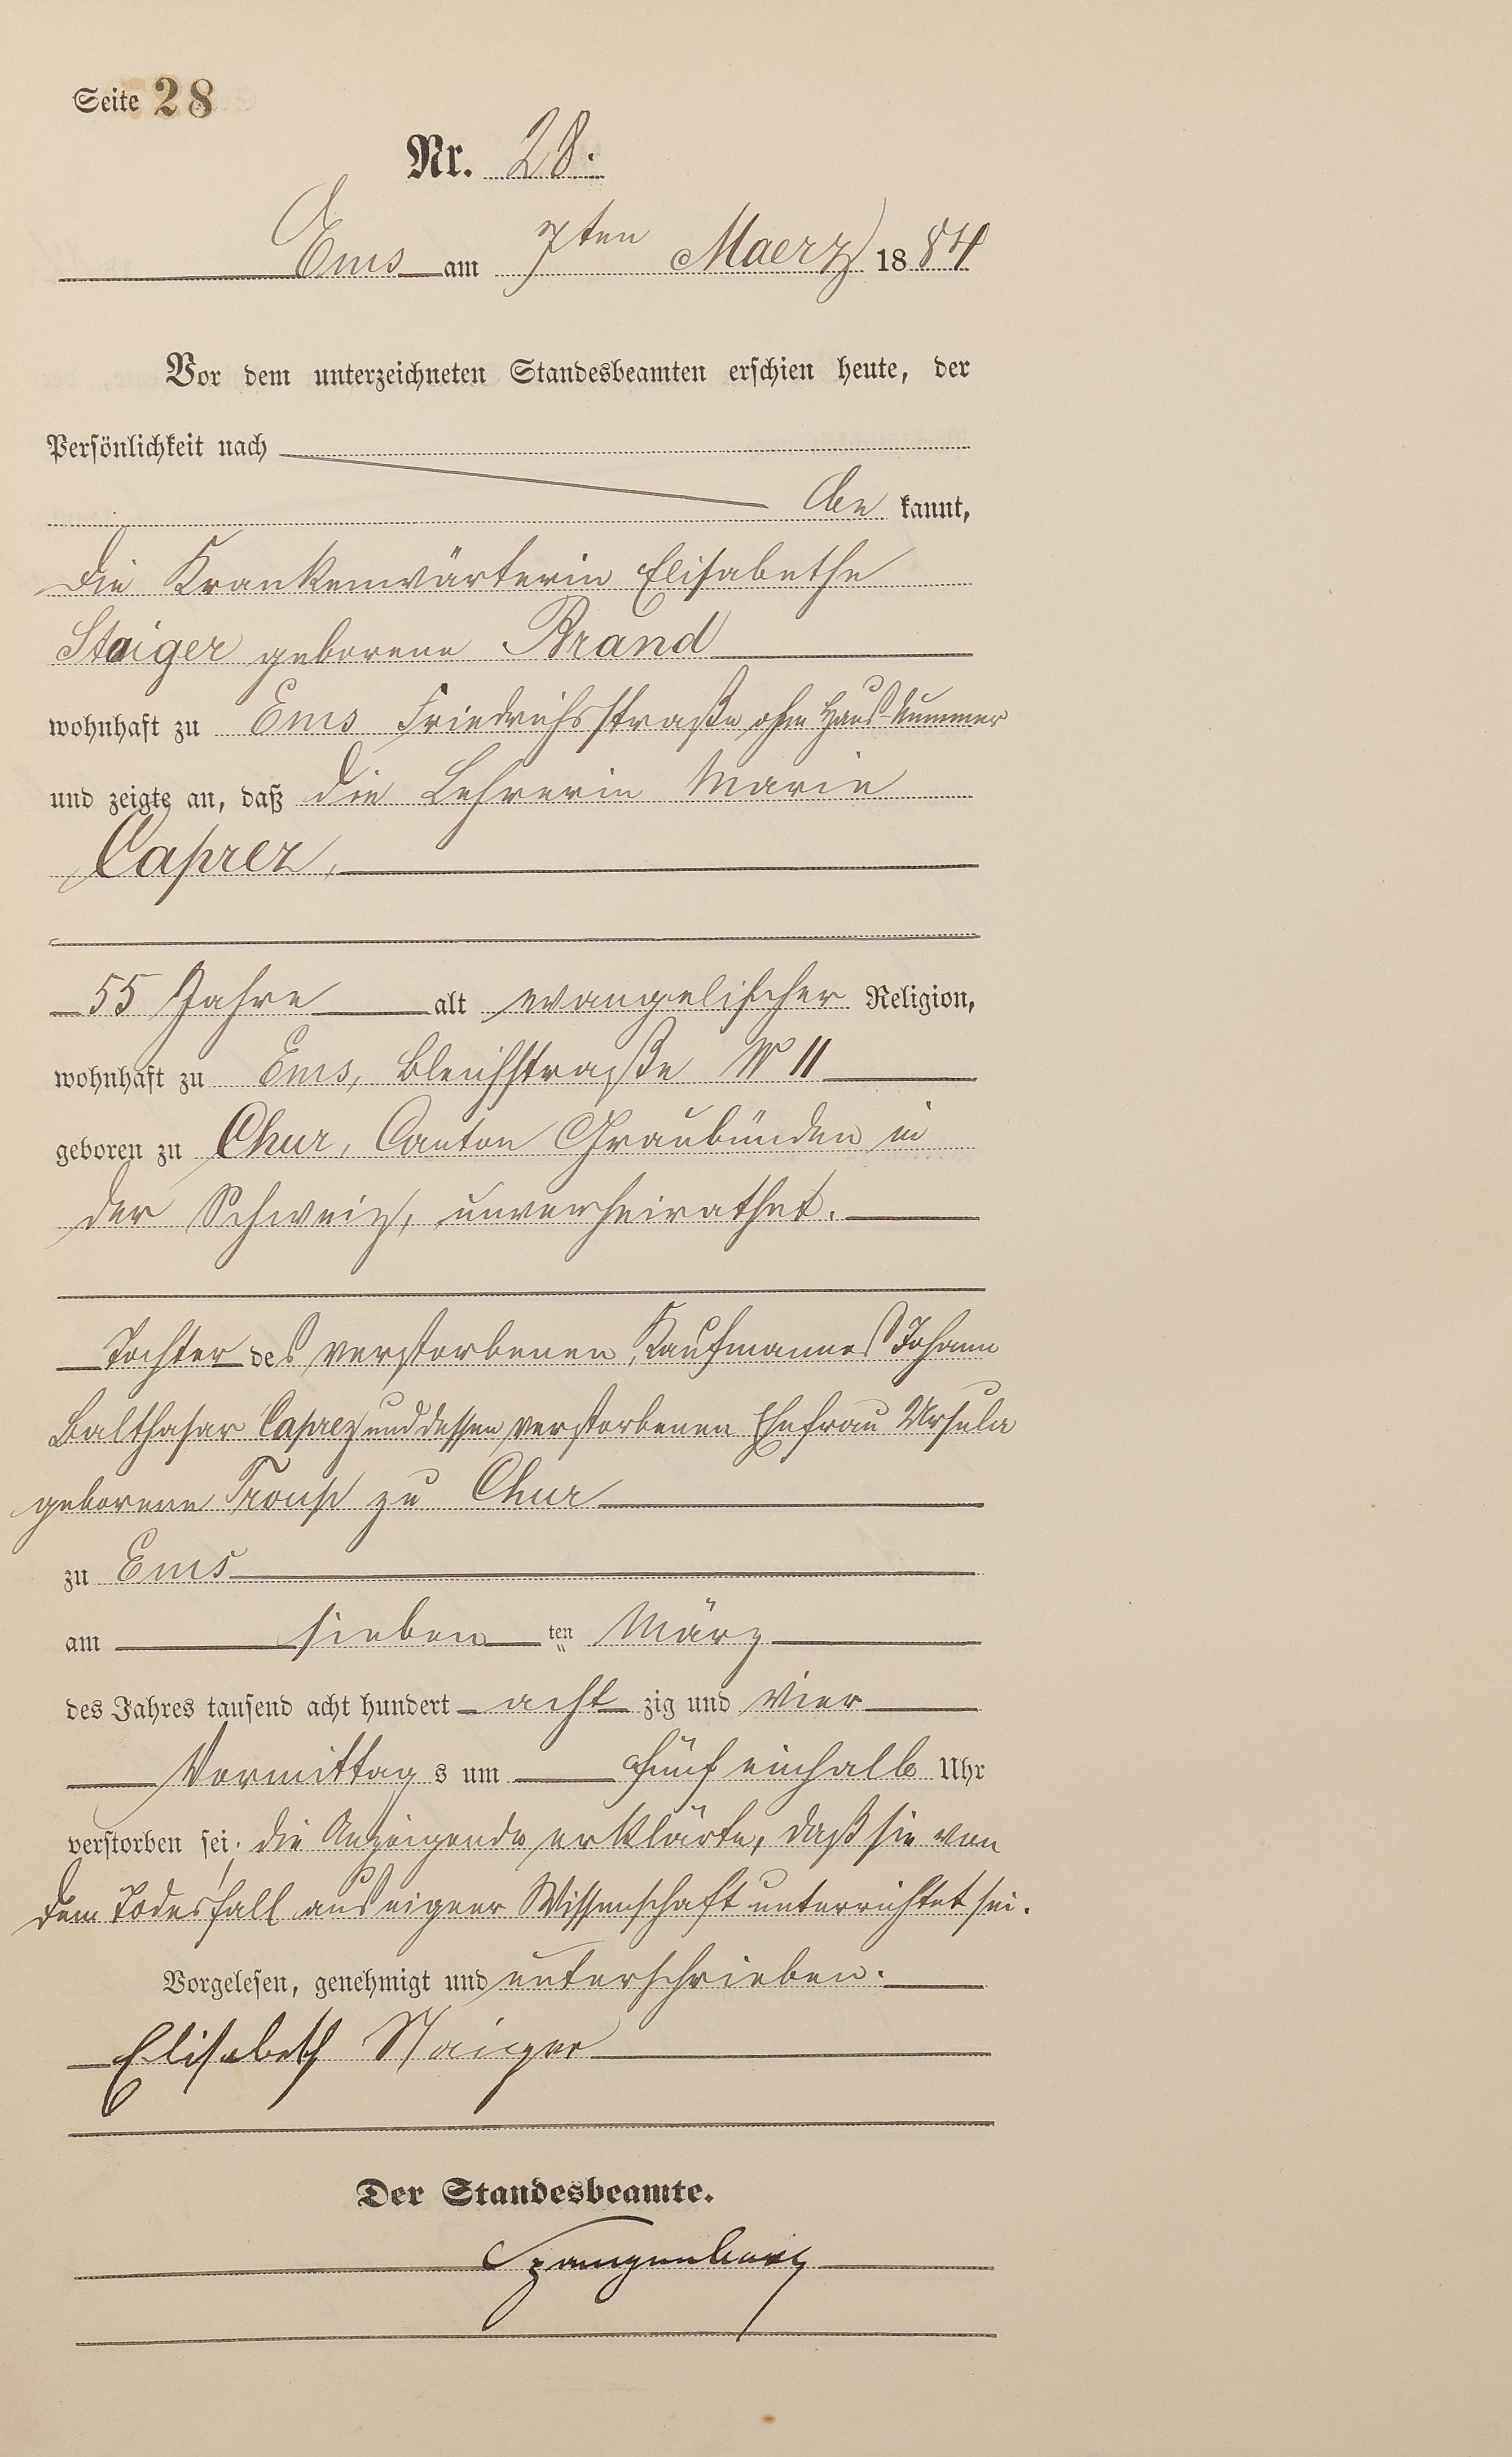 Seite 28
Nr. 28.
Ems am 7ten Maerz 1884
Vor dem unterzeichneten Standesbeamten erschien heute, der
Persönlichkeit nach
be kannt,
die Krankenwärterin Elisabethe
Staiger geborene Brand
wohnhaft zu Ems Friedrichsstraße ohne Haus-Nummer
und zeigte an, daß die Lehrerin Marie
Caprez,
55 Jahre alt evangelischer Religion,
wohnhaft zu Ems, Bleichstraße No 11
geboren zu Chur, Canton Graubünden in
der Schweiz, unverheirathet.
Tochter des verstorbenen Kaufmannes Johann
Balthasar Caprez und dessen verstorbenen Ehefrau Ursula
geborene zu Chur
zu Ems
am sieben ten März
des Jahres tausend acht hundert acht zig und vier
Vormittag s um fünf einhalb Uhr
verstorben sei; die Anzeigende erklärte, daß sie von
dem Todesfall aus eigener Wissenschaft unterrichtet sei.
Vorgelesen, genehmigt und unterschrieben.
Elisabeth Staiger
Der Standesbeamte.
Spangenberg